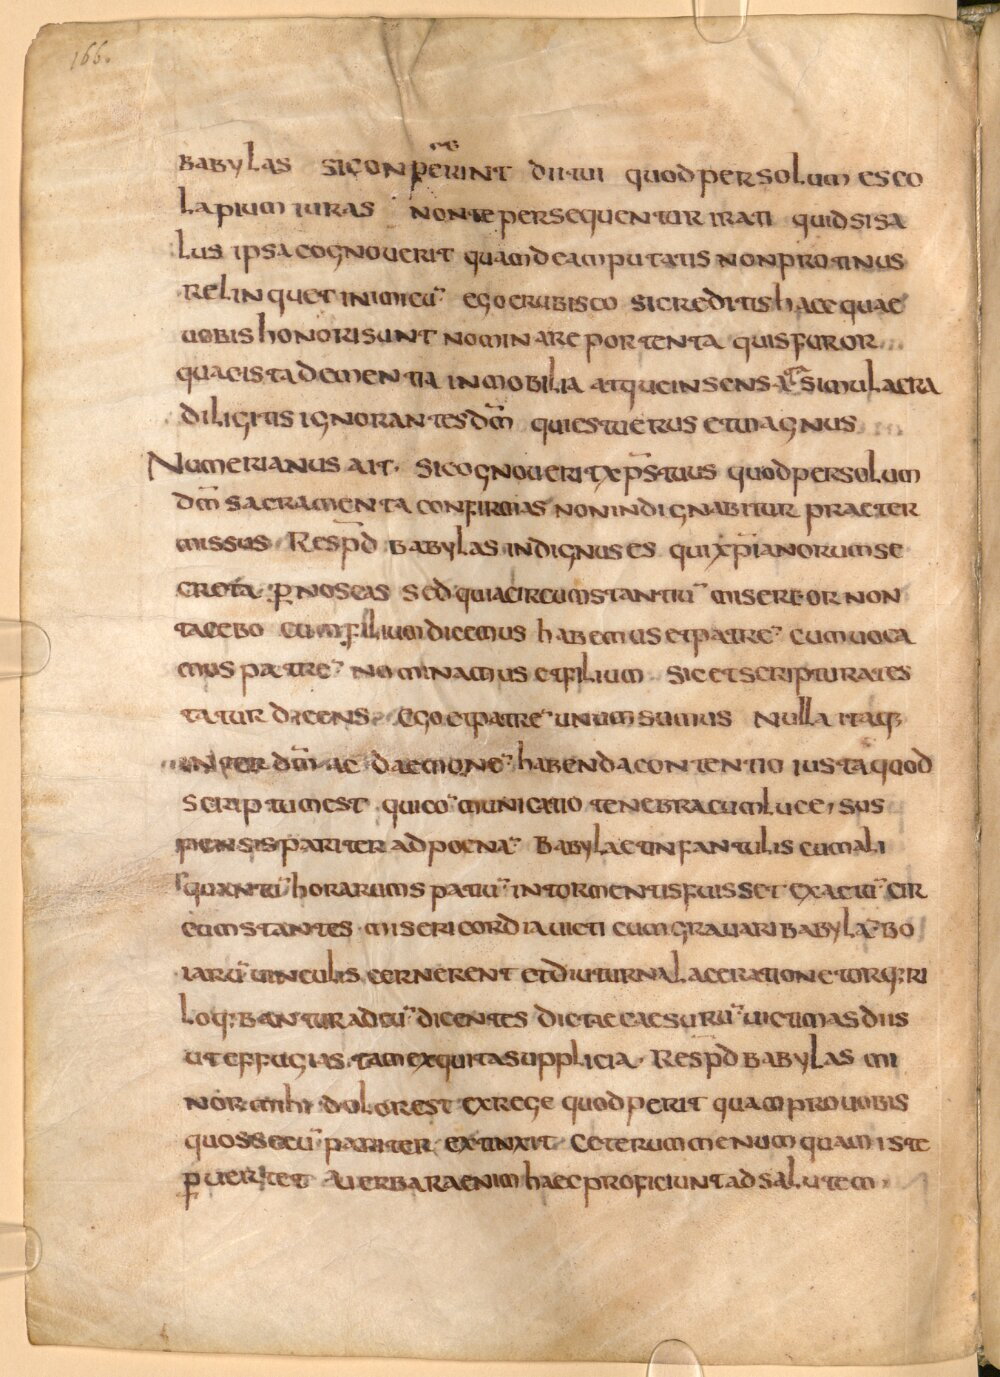 166.
babylas si conperint dii tui quod per solum esco
lapium iuras non te persequentur irati quid si sa
lus ipsa cognouerit quam deam putatis non protinus
relinquet inimicū ego erubisco si creditis haec quae
uobis honori sunt nominare portenta quis furor
quae ista dementia inmobilia atque insensata simulacra
diligitis ignorantes dm̄ qui est uerus et magnus
Numerianus ait · si cognouerit xp̄s tuus quod per solum
dm̄ sacramenta confirmas non indignabitur praeter
missus Resp̄d babylas indignus es qui xp̄ianorum se
creta p̱noscas sed quia circumstantiū misereor non
tacebo cum filium dicemus habemus et patrē cum uoca
mus patrē nominamus et filium sic et scriptura tes
tatur dicens ego et patrē unum sumus nulla itaq;
inter dm̄ ac daemonē habenda contentio iusta quod
scriptum est qui cōmunicatio tenebra cum luce, sus
pensis pariter ad poenā Babylae tinfantulis cum ali
quantū horarum spatiū in tormentis fuisset exactū cir
cumstantes misericordia uicti cum grauari babylā bo
iarū uinculis cernerent et diuturna laceratione torq;ri
loq;bantur ad eū dicentes dic te caesurū uictimas diis
ut effugias tam exquita supplicia · Resp̄d babylas mi
nor mihi dolor est ex rege quod perit quam pro uobis
quos secū pariter extinxit ceterum me numquam iste
p̱uertet a uerbera enim haec proficiunt ad salutem